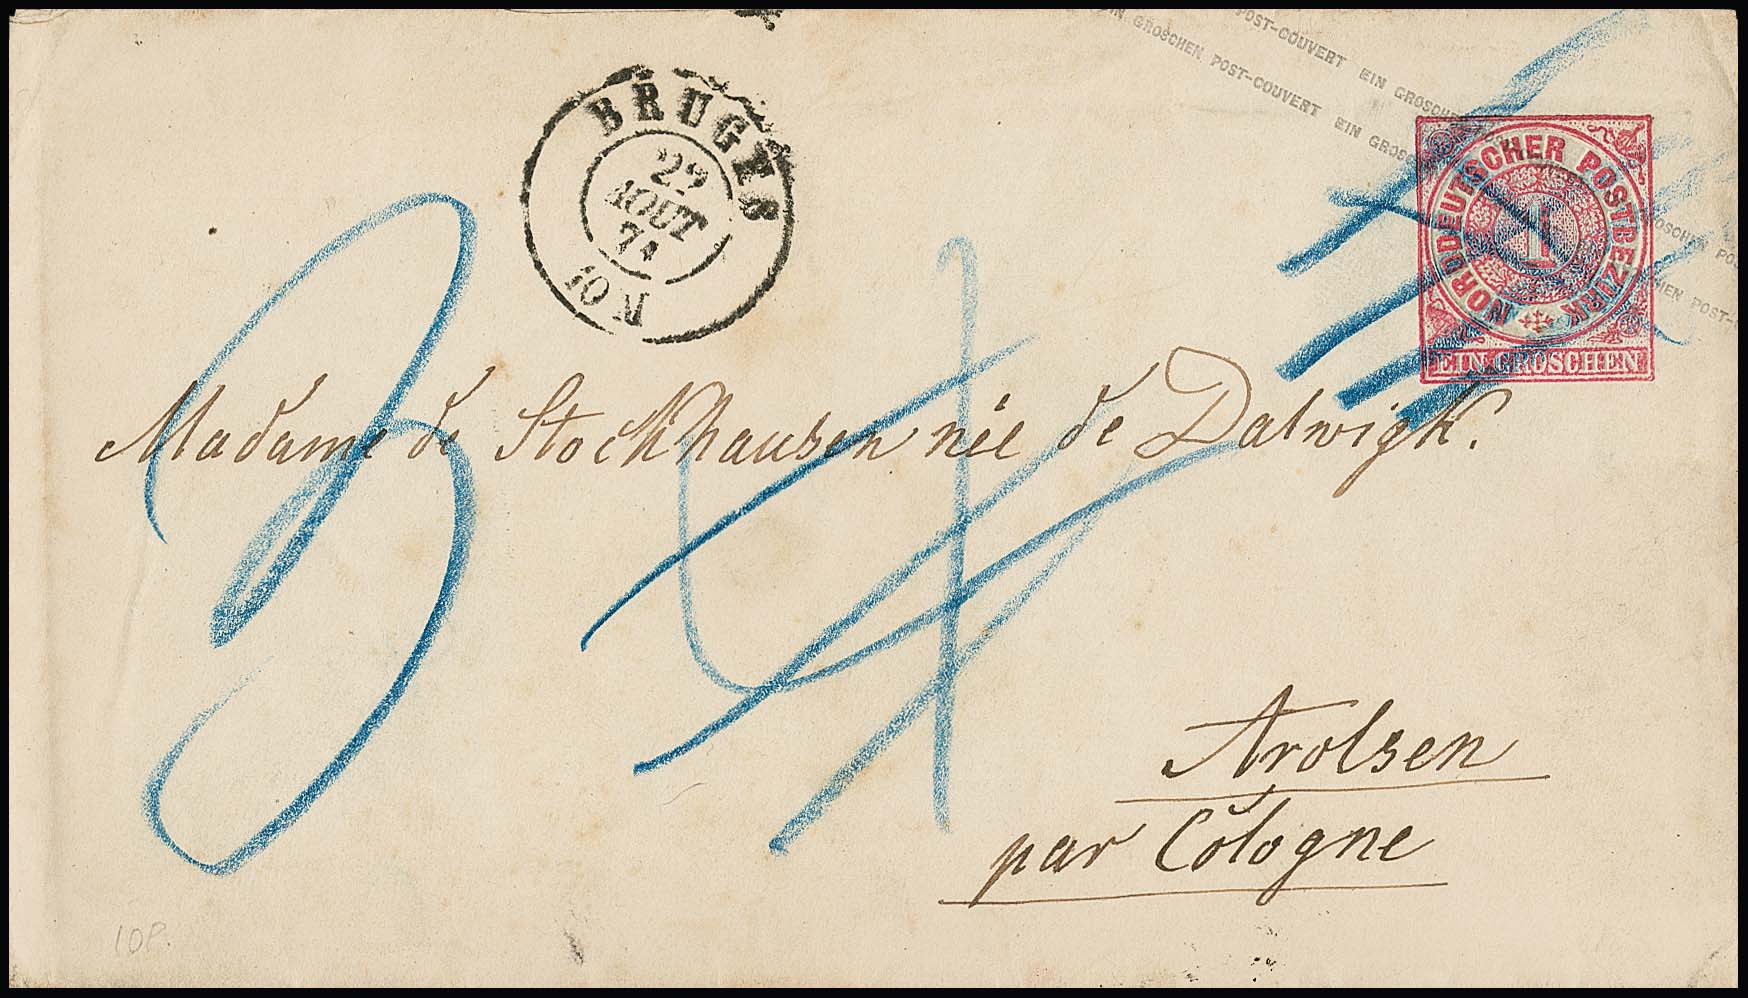 POST-COUVERT EIN GROSCHEN
EIN GROSCHEN POST-COUVERT EIN GROSCHEN
BRUGES
22
AOUT
71
NORDDEUTSCHER POSTBEZIRK
1
EIN GROSCHEN
GROSCHEN POST-
POST-
3
4
Madame de Stockhausen née de Dalwigk.
Arolsen
par Cologne
10P.